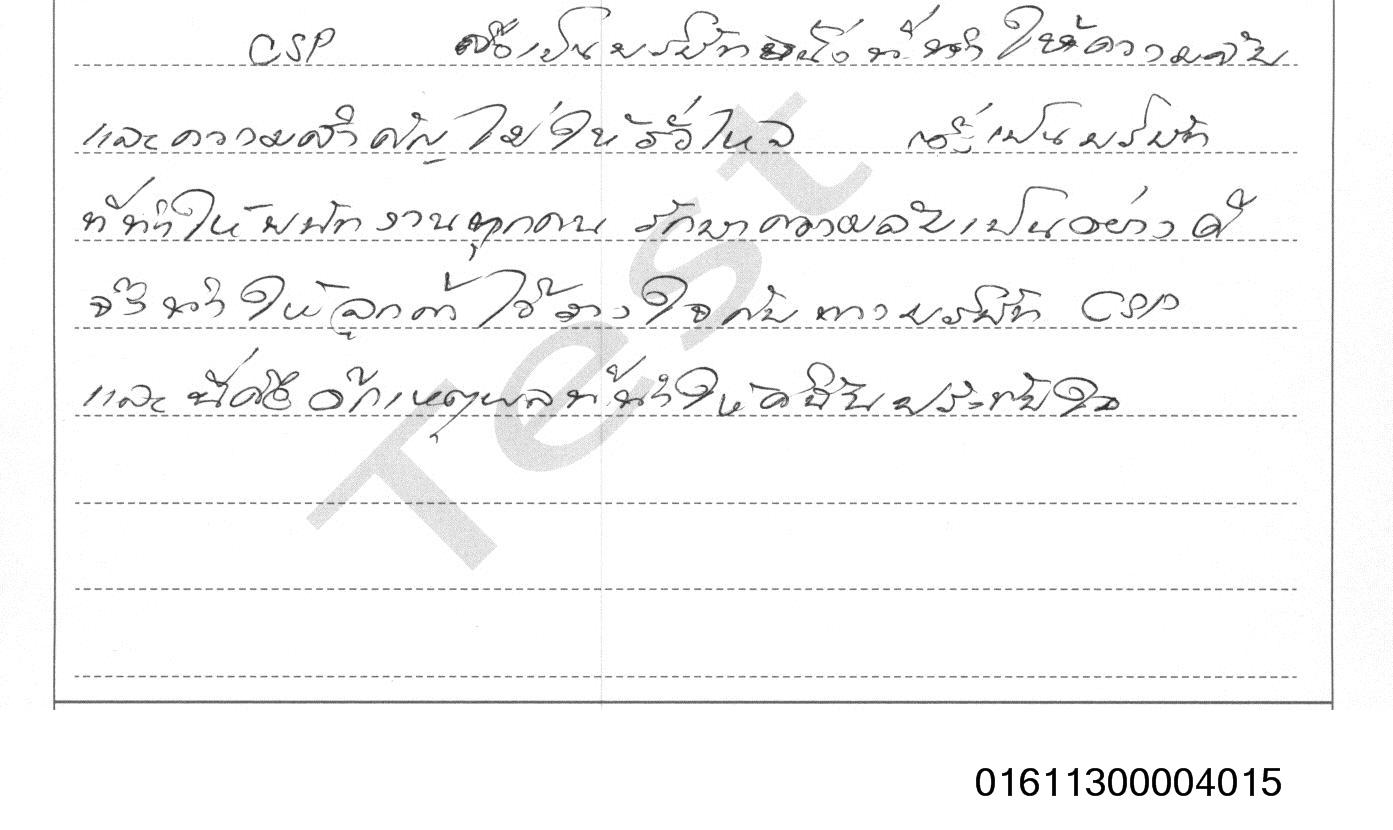 CSP ถือเป็นบริษัทหนึ่งที่ทำให้ความลับ
และความสำคัญไม่ให้รั่วไหล เป็นบริษัท
ที่ทำให้พนักงานทุกคน รักษาความลับเป็นอย่างดี
จึงทำให้ลูกค้าไว้วางใจกับทางบริษัท CSP
และนี่คืออีกเหตุผลที่ทำให้ดิฉันประทับใจ
Test
01611300004015